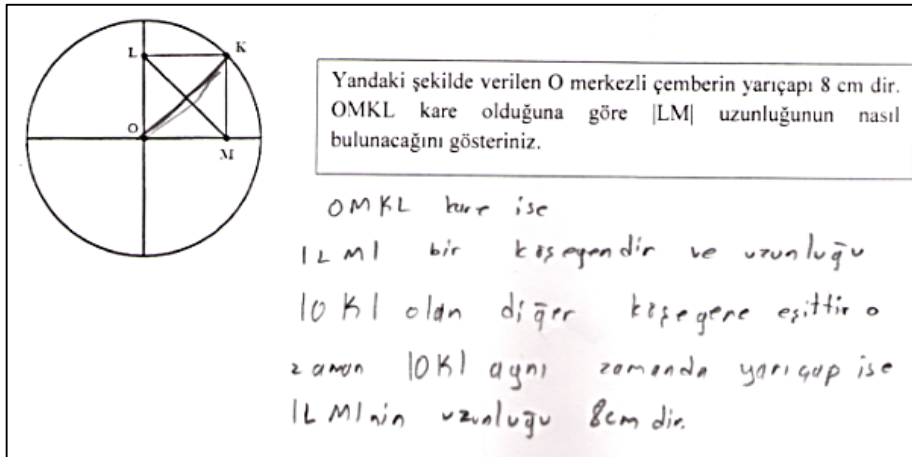 L K
O
M
Yandaki şekilde verilen O merkezli çemberin yarıçapı 8 cm dir.
OMKL kare olduğuna göre |LM| uzunluğunun nasıl
bulunacağını gösteriniz.
OMKL kare ise
|LM| bir köşegendir ve uzunluğu
|OK| olan diğer köşegene eşittir o
zaman |OK| aynı zamanda yarıçap ise
|LM| nin uzunluğu 8cm dir.